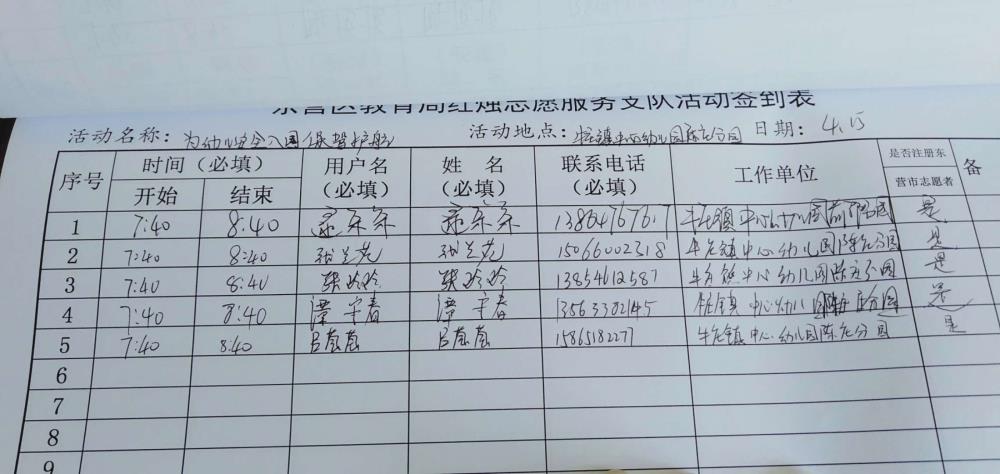 东营区教育局红烛志愿服务支队活动签到表
活动名称：为幼儿安全入园保驾护航 活动地点：牛庄镇中心幼儿园陈庄分园 日期：4.15
序号 时间（必填） 用户名（必填） 姓 名（必填） 联系电话（必填） 工作单位 是否注册东营市志愿者 备
开始 结束
1 7:40 8:40 牛庄镇中心幼儿园 是
2 7:40 8:40 15066002318 牛庄镇中心幼儿园陈庄分园 是
3 7:40 8:40 张玲玲 张玲玲 13854612587 牛庄镇中心幼儿园陈庄分园 是
4 7:40 8:40 谭宇春 谭宇春 13563382145 牛庄镇中心幼儿园陈庄分园 是
5 7:40 8:40 吕蒙蒙 吕蒙蒙 15865182277 牛庄镇中心幼儿园陈庄分园 是
6
7
8
9